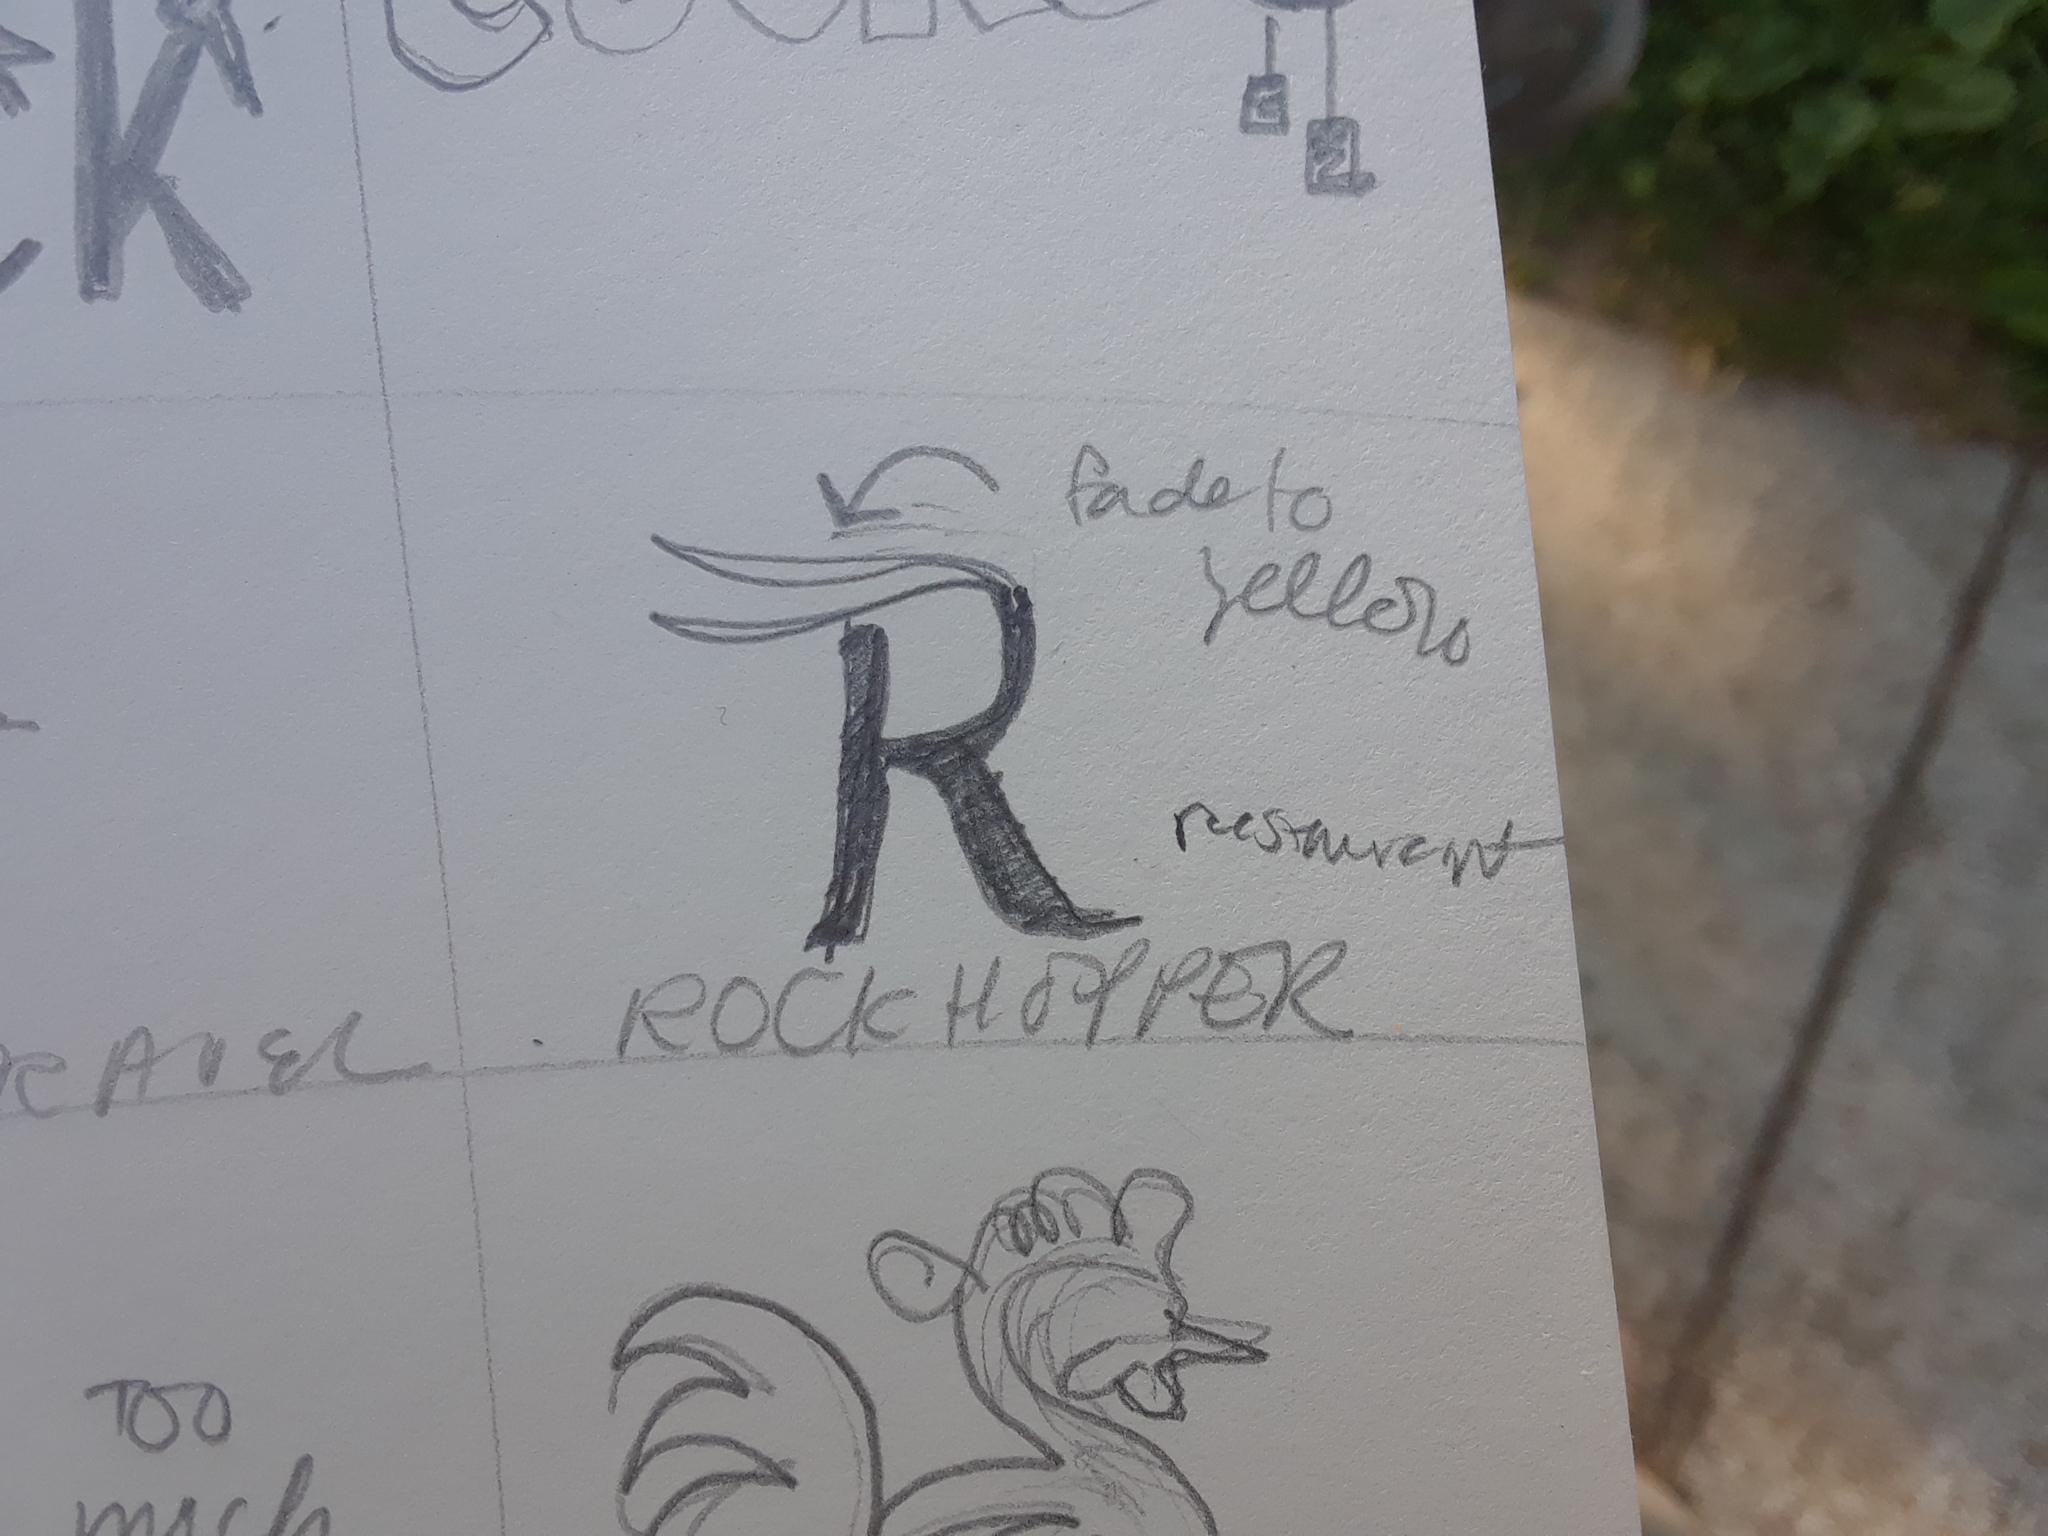 K
fade to
yellow
R
restaurant
ROCKHOPPER
RAVEL
TOO
much